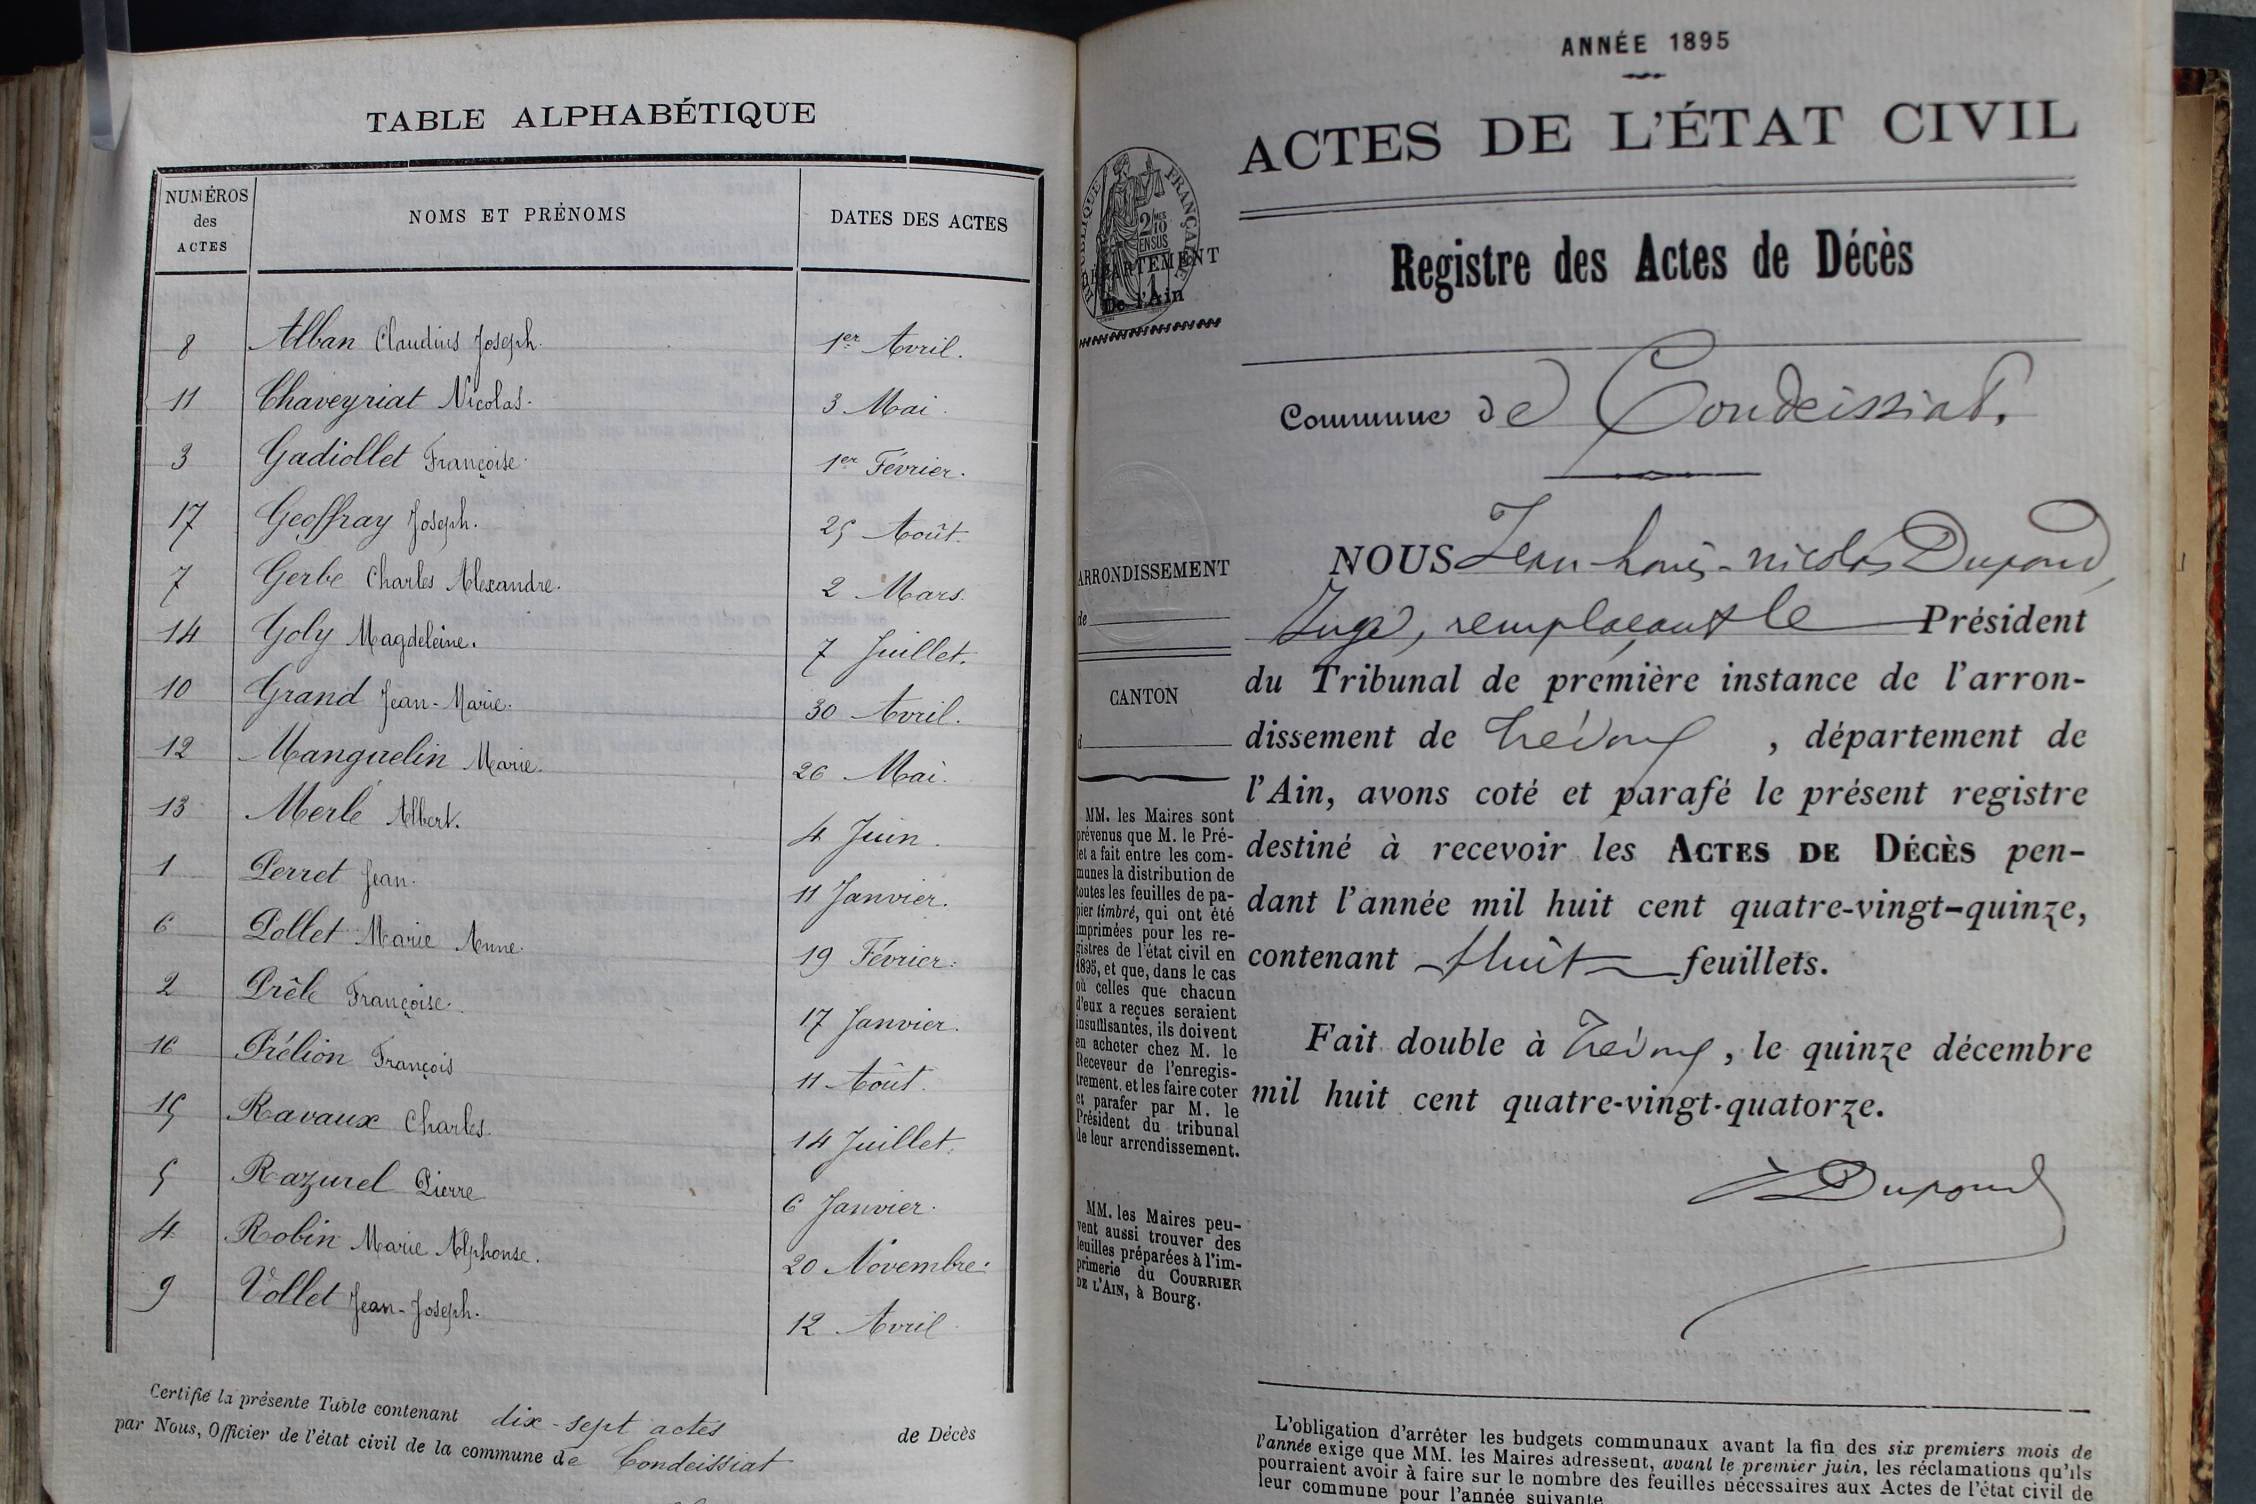 TABLE ALPHABÉTIQUE
NUMÉROS
des
ACTES
NOMS ET PRÉNOMS
DATES DES ACTES
8 Alban Claudius Joseph. 1er Avril.
11 Chaveyriat Nicolas. 3 Mai.
3 Gadiollet Françoise. 1er Février.
17 Geoffray Joseph. 25 Août.
7 Gerbe Charles Alexandre. 2 Mars.
14 Goly Magdeleine. 7 Juillet.
10 Grand Jean-Marie. 30 Avril.
12 Manguelin Marie. 26 Mai.
13 Merle Albert. 4 Juin.
1 Perret Jean. 11 Janvier.
6 Pollet Marie Anne. 19 Février.
2 Prêle Françoise. 17 Janvier.
16 Prélion François 11 Août.
15 Ravaux Charles. 14 Juillet.
5 Razurel Pierre 6 Janvier.
4 Robin Marie Alphonse. 20 Novembre.
9 Vollet Jean-Joseph. 12 Avril
Certifié la présente Table contenant dix-sept actes de Décès
par Nous, Officier de l'état civil de la commune de Condeissiat
ANNÉE 1895
ACTES DE L'ÉTAT CIVIL
Registre des Actes de Décès
Commune de Condeissiat.
NOUS Jean-Louis-nicolas Dupond,
Juge, remplaçant le Président
du Tribunal de première instance de l'arron-
dissement de Trévoux, département de
l'Ain, avons coté et parafé le présent registre
destiné à recevoir les ACTES DE DÉCÈS pen-
dant l'année mil huit cent quatre-vingt-quinze,
contenant huit feuillets.
Fait double à Trévoux, le quinze décembre
mil huit cent quatre-vingt-quatorze.
Dupond
RÉPUBLIQUE FRANÇAISE
2/10 MES
EN SUS
DÉPARTEMENT
De l'Ain
ARRONDISSEMENT
de
CANTON
d
MM. les Maires sont
prévenus que M. le Pré-
fet a fait entre les com-
munes la distribution de
toutes les feuilles de pa-
pier timbré, qui ont été
imprimées pour les re-
gistres de l'état civil en
1895, et que, dans le cas
où celles que chacun
d'eux a reçues seraient
insuffisantes, ils doivent
en acheter chez M. le
Receveur de l'enregis-
trement, et les faire coter
et parafer par M. le
Président du tribunal
de leur arrondissement.
MM. les Maires peu-
vent aussi trouver des
feuilles préparées à l'im-
primerie du COURRIER
DE L'AIN, à Bourg.
L'obligation d'arrêter les budgets communaux avant la fin des six premiers mois de
l'année exige que MM. les Maires adressent, avant le premier juin, les réclamations qu'ils
pourraient avoir à faire sur le nombre des feuilles nécessaires aux Actes de l'état civil de
leur commune pour l'année suivante.